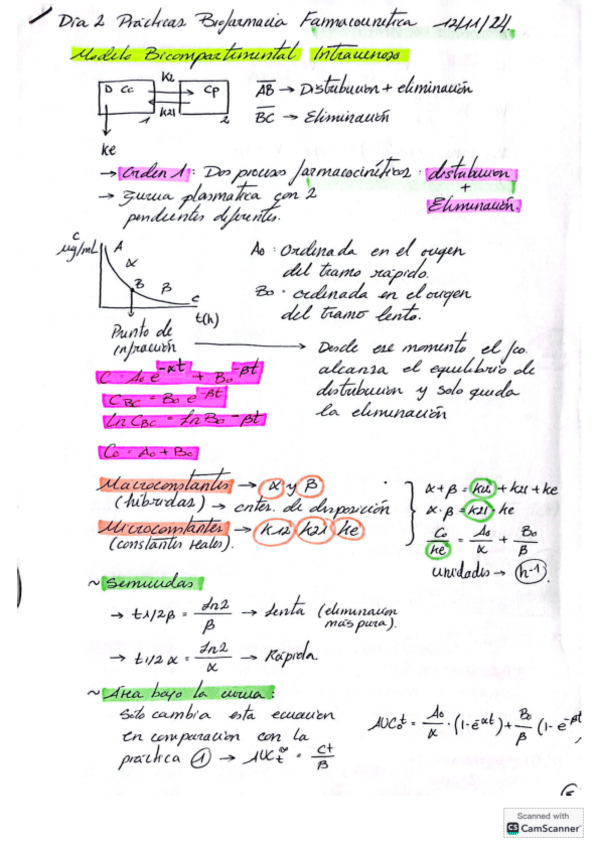 Día 2 Prácticas Biofarmacia Farmacocinética 12/11/24.
Modelo Bicompartimental Intravenoso
K12
D Cc
Cp
K21
1
2
Ke
AB → Distribución + eliminación
BC → Eliminación
→ Orden 1: Dos proceso farmacocinéticos: distribución
+
Eliminación.
→ Curva plasmática con 2
pendientes diferentes.
C
μg/mL
A
α
B
β
C
t(h)
A₀: Ordenada en el origen
del tramo rápido.
B₀: ordenada en el origen
del tramo lento.
Punto de
infracción
→ Desde ese momento el fco.
alcanza el equilibrio de
distribución y solo queda
la eliminación
C = A₀ e^-αt + B₀^-βt
C_BC = B₀ e^-βt
Ln C_BC = Ln B₀ - βt
C₀ = A₀ + B₀
Macroconstantes → α y β
(híbridas) → ctes. de disposición
Microconstantes → K12 K21 Ke
(constantes reales).
α + β = K12 + K21 + Ke
α · β = K21 · Ke
C₀/Ke = A₀/α + B₀/β
unidades → h⁻¹
~ Semividas
→ t1/2β = Ln2/β → Lenta (eliminación
más pura).
→ t1/2 α = Ln2/α → Rápida.
~ Área bajo la curva:
Solo cambia esta ecuación
en comparación con la
práctica 1 → AUC_t^∞ = Ct/β
AUC₀^t = A₀/α · (1-e^-αt) + B₀/β (1-e^-βt
Scanned with
CS CamScanner